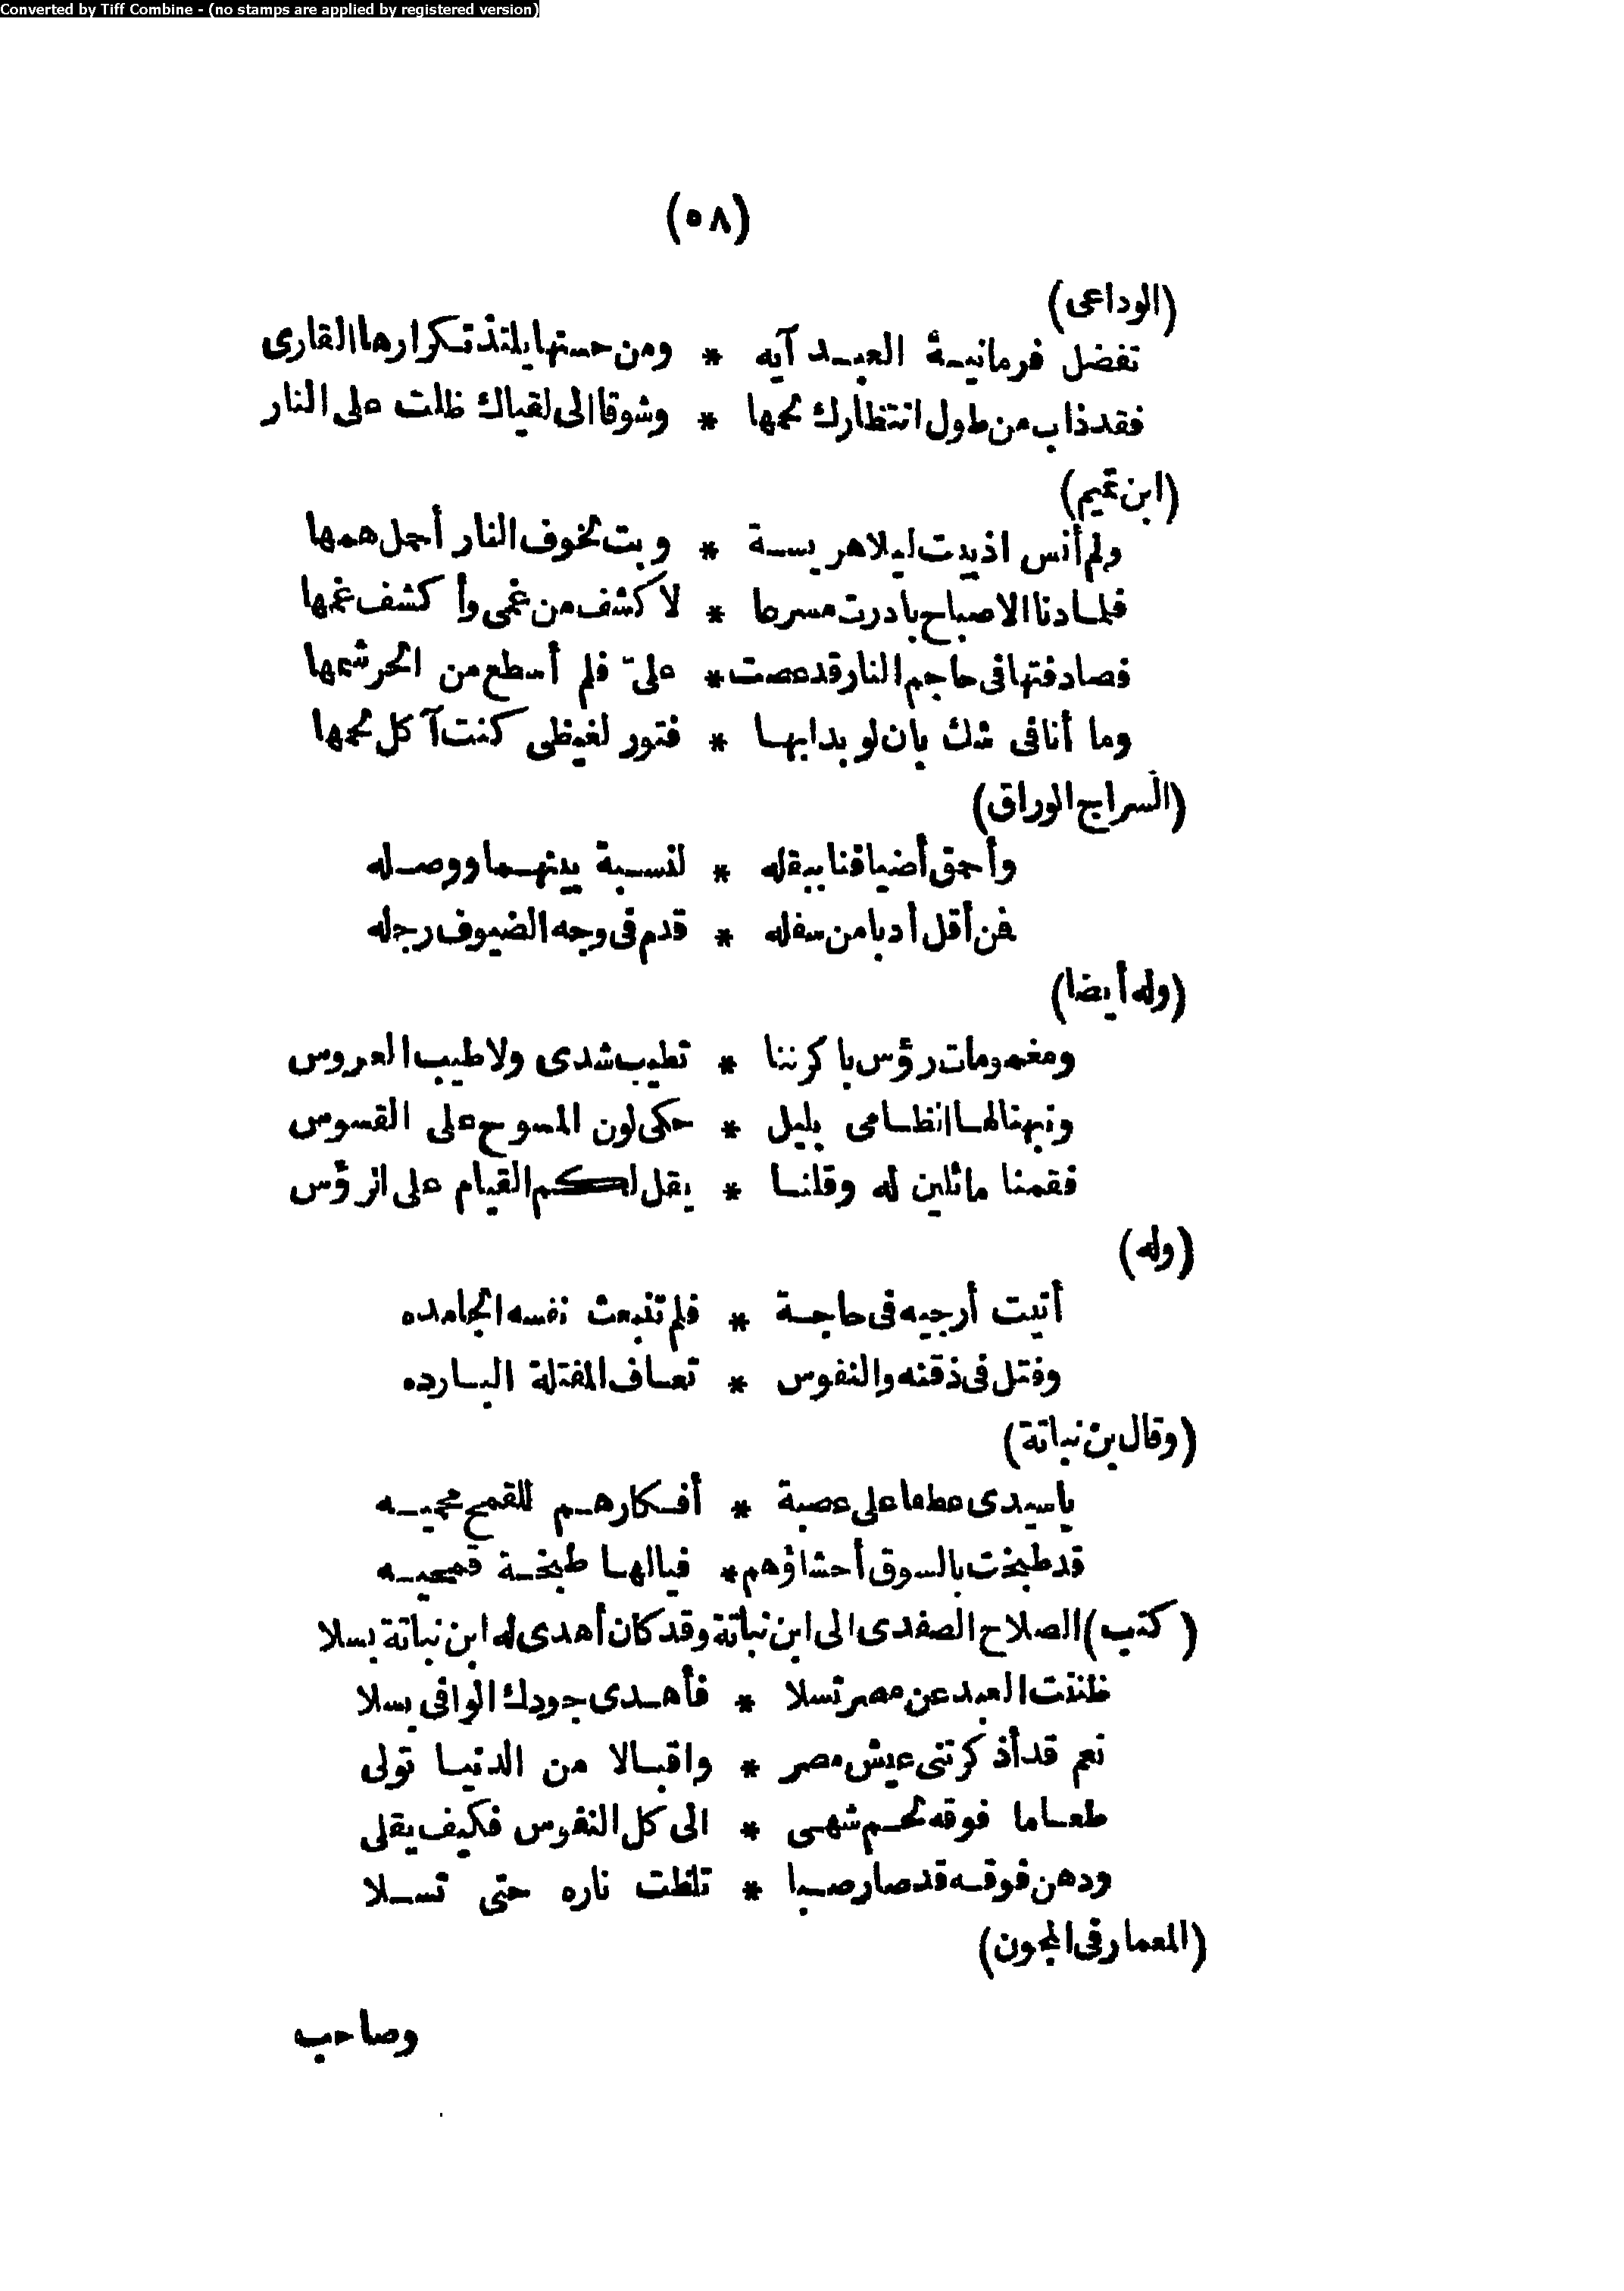 Converted by Tiff Combine - (no stamps are applied by registered version)
(٥٨)
(الوداعى)
تفضل فرمانية العبد آيه * ومن حسنها يلتذ تكرارها القارى
فقد ذاب من طول انتظارك لحمها * وشوقا الى لقياك ظلت على النار
(ابن تميم)
ولم أنس اذ بيت ليلا هريسة * وبت لخوف النار أحمل همها
فلما دنا الاصباح بادرت مسرعا * لا كشف من غمى وأكشف غمها
فصادفتها فى حاجم النار قد عصت * علىّ فلم أسطع من الحر شمها
وما أنا فى شك بان لو بدا بها * فتور لغيظى كنت آكل لحمها
(السراج الوراق)
وأحمق أضيافنا ببقله * لنسبة بينهما ووصله
فمن أقل أدبا من سفله * قدم فى وجه الضيوف رجله
(وله أيضا)
ومغمومات رؤس باكرننا * تطيب شذى ولا طيب العروس
ونبهنا لها انظامى بليل * حكى لون المسوح على القسوس
فقمنا ماثلين له وقلنا * يقل لكم القيام على الرؤس
(وله)
أتيت أرجيه فى حاجة * فلم تنبعث نفسه الجامده
وفتل فى ذقنه والنفوس * تعاف المفتلة البارده
(وقال بن نباتة)
يا سيدى عطفا على عصبة * أفكارهم للقمح محميه
قد طبخت بالسوق أحشاؤهم * فيالها طبخة قمحيه
(كتب) الصلاح الصفدى الى ابن نباتة وقد كان أهدى له ابن نباتة بسلا
ظننت العبد عن مصر تسلا * فأهدى جودك الوافى بسلا
نعم قد أذكرتنى عيش مصر * واقبالا من الدنيا تولى
طعاما فوقه لحم شهى * الى كل النفوس فكيف يقلى
ودهن فوقه قد صار صبا * تلظت ناره حتى تسلا
(المعمار فى المجون)
وصاحب